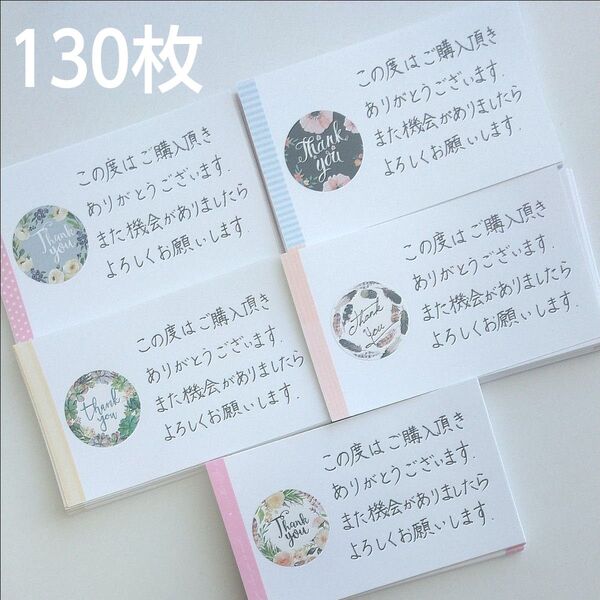 130枚
この度はご購入頂き
ありがとうございます.
また機会がありましたら
よろしくお願いします.
Thank
you
この度はご購入頂き
ありがとうございます.
また機会がありましたら
よろしくお願いします.
Thank
you
この度はご購入頂き
ありがとうございます.
また機会がありましたら
よろしくお願いします.
thank
you
この度はご購入頂き
ありがとうございます.
また機会がありましたら
よろしくお願いします.
Thank
You
この度はご購入頂き
ありがとうございます.
また機会がありましたら
よろしくお願いします.
Thank
you